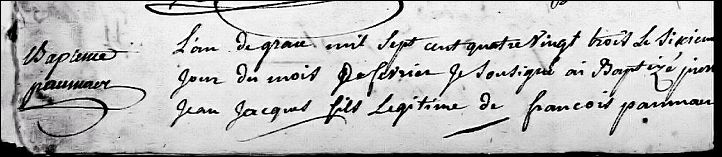 Bapteme
paumier
L'an de grace mil sept cent quatre vingt trois Le sixieme
jour du mois De fevrier Je Sousigné ai Baptizé
Jean Jacques fils Legitime de francois